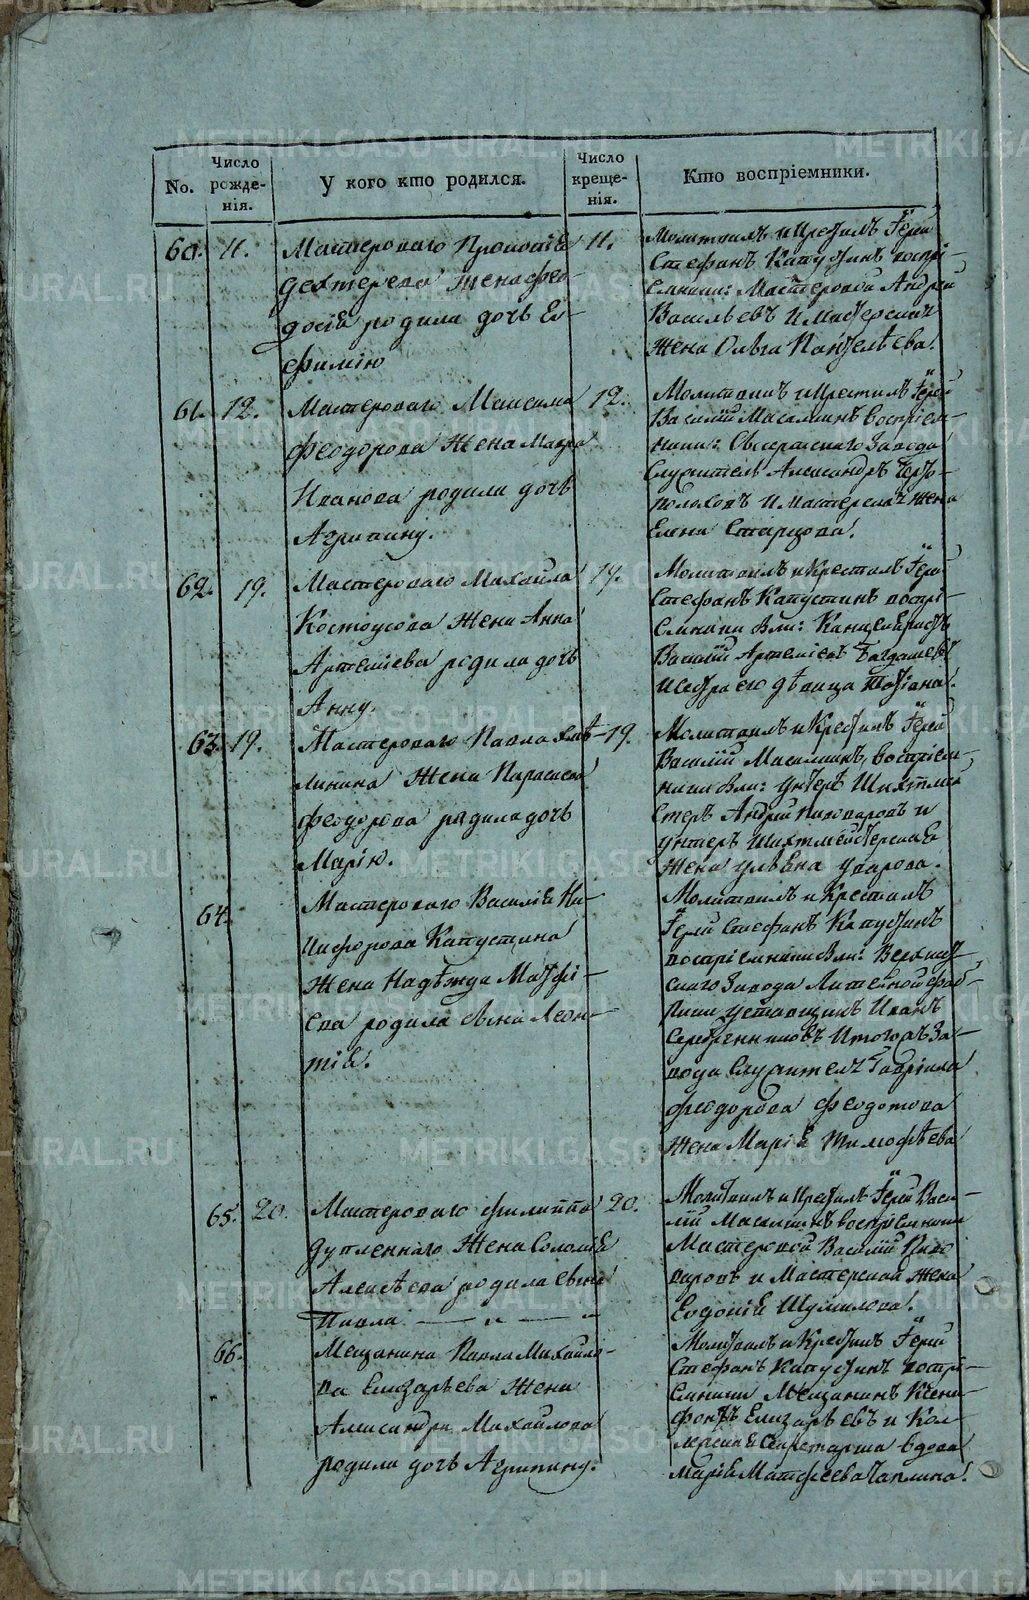 No.
Число рожде-нія.
У кого кто родился.
Число креще-нія.
Кто воспріемники.
60. 11.
Мастероваго Прокопія
Дехтерева жена Фео-
досія родила дочь Ев-
фимію
11.
Молитвилъ и крестилъ Іерей
Стефанъ Капустинъ воспрі-
емники: Мастеровой Андрей
Васильевъ и мастерская
жена Ольга Пантелѣева.
61. 12.
Мастероваго Максима
Феодорова жена Мавра
Иванова родила дочь
Агрипину.
12.
Молитвилъ и крестилъ Іерей
Василій Масалкинъ воспріем-
ники: Сысертскаго завода
Служитель Александръ Чер-
и мастерская жена
Елена Старцова.
62. 19.
Мастероваго Михайла
Костоусова жена Анна
Артеміева родила дочь
Анну.
19.
Молитвилъ и крестилъ Іерей
Стефанъ Капустинъ воспрі-
емники были: Канцеляристъ
Василій Артеміевъ
и сестра его дѣвица Татіана.
63. 19.
Мастероваго Павла Хмѣ-
линина жена Параскева
Феодорова родила дочь
Марію.
19.
Молитвилъ и крестилъ Іерей
Василій Масалкинъ, воспріем-
ники были: Унтеръ Шихтмей-
стеръ Андрей Пивоваровъ и
унтеръ шихтмейстерская
жена Ульяна Уварова.
64.
Мастероваго Василія Ни-
кифорова Капустина
жена Надѣжда Матфі-
ева родила сына Леон-
тія.
Молитвилъ и крестилъ
Іерей Стефанъ Капустинъ
воспріемники были: Верхнет-
скаго завода Литейной фаб-
рики уставщикъ Иванъ
Серебренниковъ и тогожъ за-
вода служителя Гавріила
Феодорова Федотова
жена Марія Тимофѣева
65. 20.
Мастероваго Филиппа
Дутленнаго жена Соломія
Алексѣева родила сына
Павла — " — "
20.
Молитвилъ и крестилъ Іерей Васи-
лій Масалкинъ воспріемники
Мастеровой Василій Пиво
варовъ и мастерская жена
Евдокія Шумилова.
66.
Мещанина Павла Михайло-
ва Елизарьева жена
Александра Михайлова
родила дочь Агрипину.
Молитвилъ и крестилъ Іерей
Стефанъ Капустинъ воспрі-
емники Мещанинъ Ксено-
фонтъ Елизарьевъ и Кол-
лежская Секретарша вдова
Марія Матфеева Чаплина.
METRIKI.GASO-URAL.RU